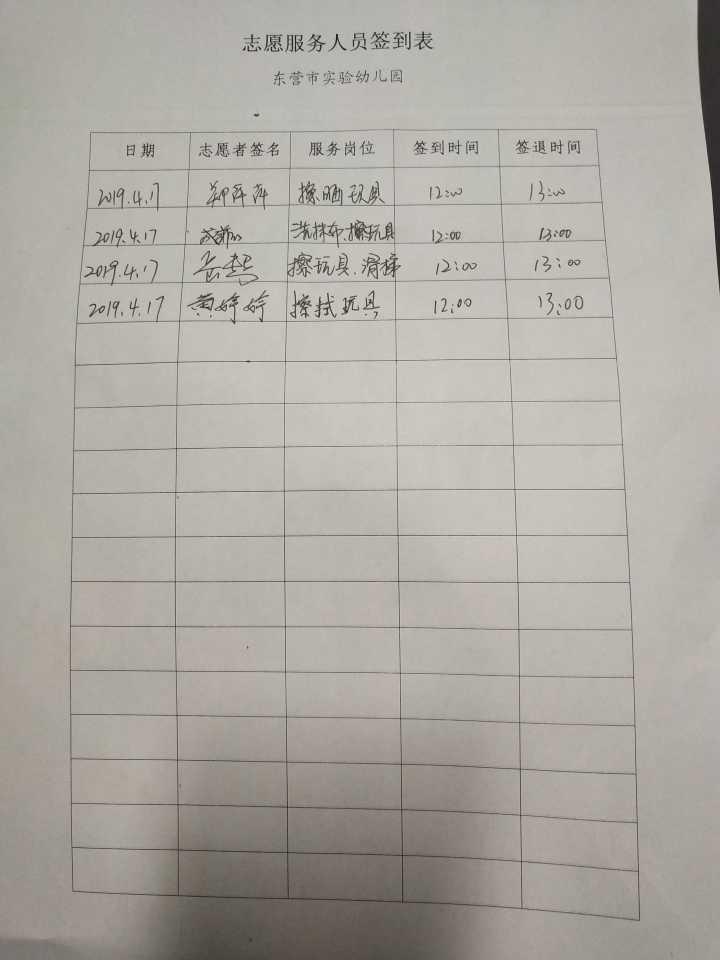 志愿服务人员签到表
东营市实验幼儿园
日期 志愿者签名 服务岗位 签到时间 签退时间
2019.4.17 郑萍萍 擦晒玩具 12:00 13:00
2019.4.17 洗抹布、擦玩具 12:00 13:00
2019.4.17 擦玩具、滑梯 12:00 13:00
2019.4.17 黄婷婷 擦拭玩具 12:00 13:00